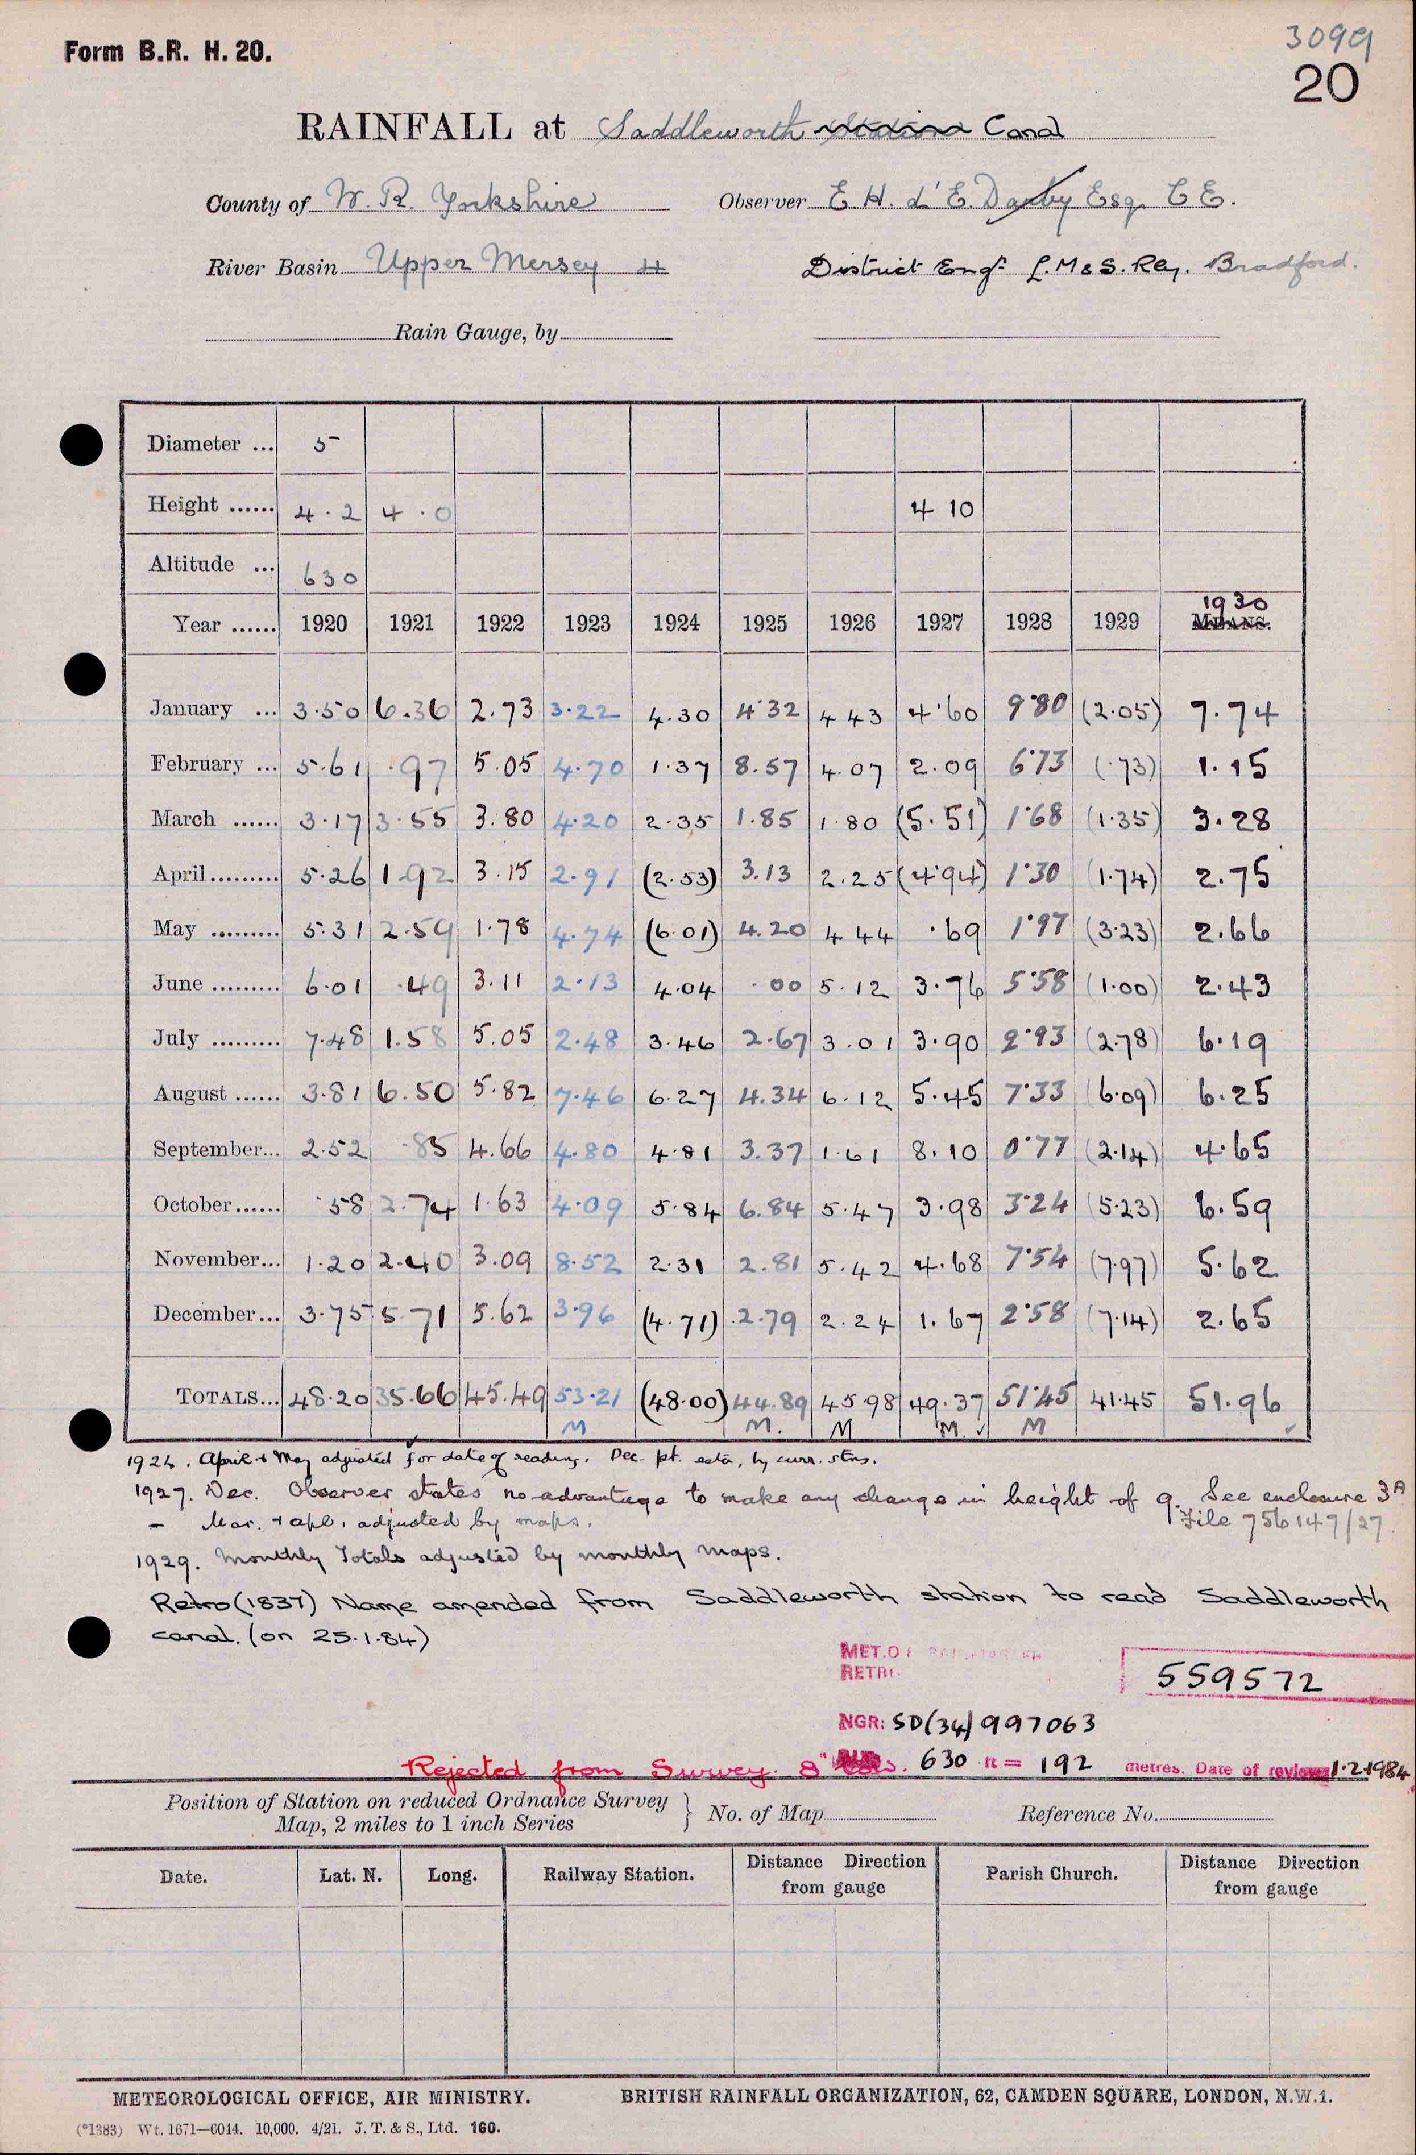 Form B.R. H. 20.
3099
20
RAINFALL at Saddleworth Station Canal
County of W. R. Yorkshire Observer E H. d' E. Danby Esq. C E.
River Basin Upper Mersey 4 District Engr. L.M & S. Rly. Bradford.
Rain Gauge, by
Diameter ... 5
Height ...... 4 . 2 4 . 0 4 10
Altitude ... 630
Year ...... 1920 1921 1922 1923 1924 1925 1926 1927 1928 1929 1930 MEANS.
January ... 3.50 6.36 2.73 3.22 4.30 4.32 4 43 4.60 9.80 (2.05) 7.74
February ... 5.61 .97 5.05 4.70 1.37 8.57 4.07 2.09 6.73 (.73) 1.15
March ...... 3.17 3.55 3.80 4.20 2.35 1.85 1.80 (5.51) 1.68 (1.35) 3.28
April......... 5.26 1.92 3.15 2.91 (2.53) 3.13 2.25 (4.94) 1.30 (1.74) 2.75
May ......... 5.31 2.59 1.78 4.74 (6.01) 4.20 4 44 .69 1.97 (3.23) 2.66
June ......... 6.01 .49 3.11 2.13 4.04 .00 5.12 3.76 5.58 (1.00) 2.43
July ......... 7.48 1.58 5.05 2.48 3.46 2.67 3.01 3.90 2.93 (2.78) 6.19
August ...... 3.81 6.50 5.82 7.46 6.27 4.34 6.12 5.45 7.33 (6.09) 6.25
September... 2.52 .85 4.66 4.80 4.81 3.37 1.61 8.10 0.77 (2.14) 4.65
October...... .58 2.74 1.63 4.09 5.84 6.84 5.47 3.98 3.24 (5.23) 6.59
November... 1.20 2.40 3.09 8.52 2.31 2.81 5.42 4.68 7.54 (7.97) 5.62
December... 3.75 5.71 5.62 3.96 (4.71) 2.79 2.24 1.67 2.58 (7.14) 2.65
TOTALS... 48.20 35.66 45.49 53.21 (48.00) 44.89 45 98 49.37 51.45 41.45 51.96
M M. M M. ✓ M ✓
1924. April & May adjusted for date of reading. Dec. pt. estn, by curr. stns.
1927. Dec. Observer states no advantage to make any change in height of g. See enclosure 3A
File 756147/27
— Mar. & apl. adjusted by maps.
1929. Monthly Totals adjusted by monthly maps.
Retro (1837) Name amended from Saddleworth station to read Saddleworth
canal. (on 25.1.84)
MET.O
RETR
559572
NGR: SD(34) 997063
Rejected from Survey. 8" 630 ft = 192 metres. Date of review 1.2.1984
Position of Station on reduced Ordnance Survey
Map, 2 miles to 1 inch Series } No. of Map Reference No.
Date. Lat. N. Long. Railway Station. Distance Direction from gauge Parish Church. Distance Direction from gauge
METEOROLOGICAL OFFICE, AIR MINISTRY. BRITISH RAINFALL ORGANIZATION, 62, CAMDEN SQUARE, LONDON, N.W.1.
(*1383) Wt. 1671—6014. 10,000. 4/21. J. T. & S., Ltd. 160.